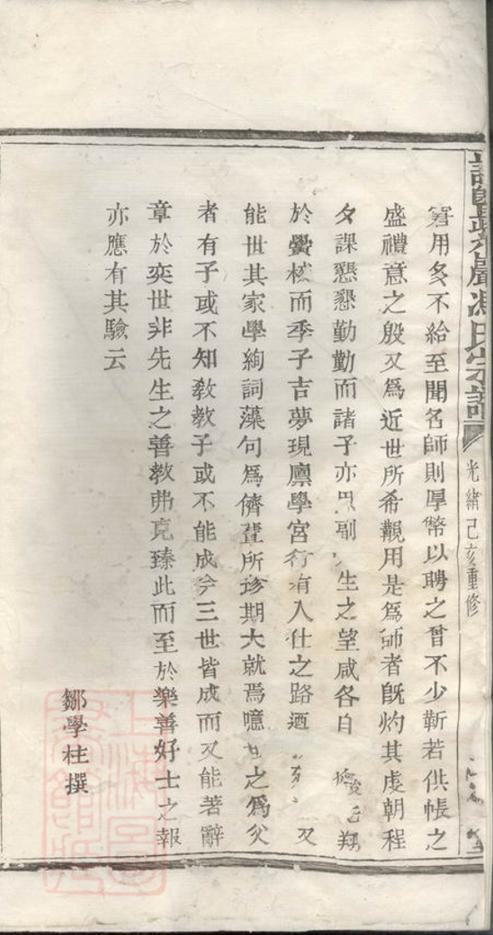 諸暨孝廉馮氏宗譜
光緒己亥重修
用多不給至聞名師則厚幣以聘之曾不少靳若供帳之
盛禮意之殷又爲近世所希觀用是爲師者旣灼其虔朝程
夕課懇懇勤勤而諸子亦思副 生之望咸各自 翔
於黌 而季子吉夢現廩學宮行有入仕之路 又
能世其家學絢詞藻句爲儕輩所 期大就焉噫 之爲父
者有子或不知敎敎子或不能成今三世皆成而又能著辭
章於奕世非先生之善敎弗克臻此而至於樂善好士之報
亦應有其驗云
鄒學柱撰
上海圖書館藏